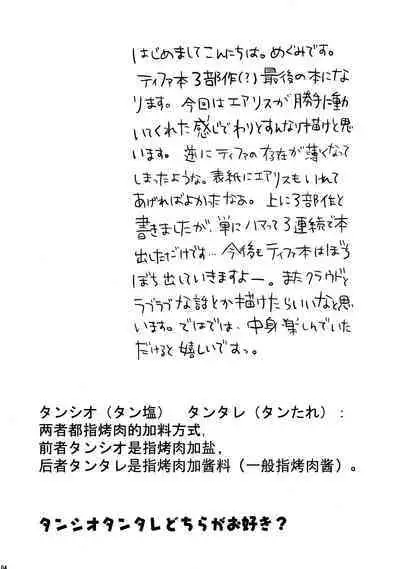 はじめましてこんにちは。めぐみです。
ティファ本3部作(?)最後の本にな
ります。今回はエアリスが勝手に動
いてくれた感じでわりとすんなり描けたと思
います。逆にティファの存在が薄くなって
しまったような。表紙にエアリスもいれて
あげればよかったなぁ。上に3部作と
書きましたが、単にハマって3連続で本
出しただけです…今後もティファ本はぼち
ぼち出していきますよー。またクラウドと
ラブラブな話とか描けたらいいなと思
います。ではでは、中身楽しんでいた
だけると嬉しいですっ。
タンシオ（タン塩）　タンタレ（タンたれ）：
两者都指烤肉的加料方式,
前者タンシオ是指烤肉加盐,
后者タンタレ是指烤肉加酱料（一般指烤肉酱）。
タンシオタンタレどちらがお好き？
04